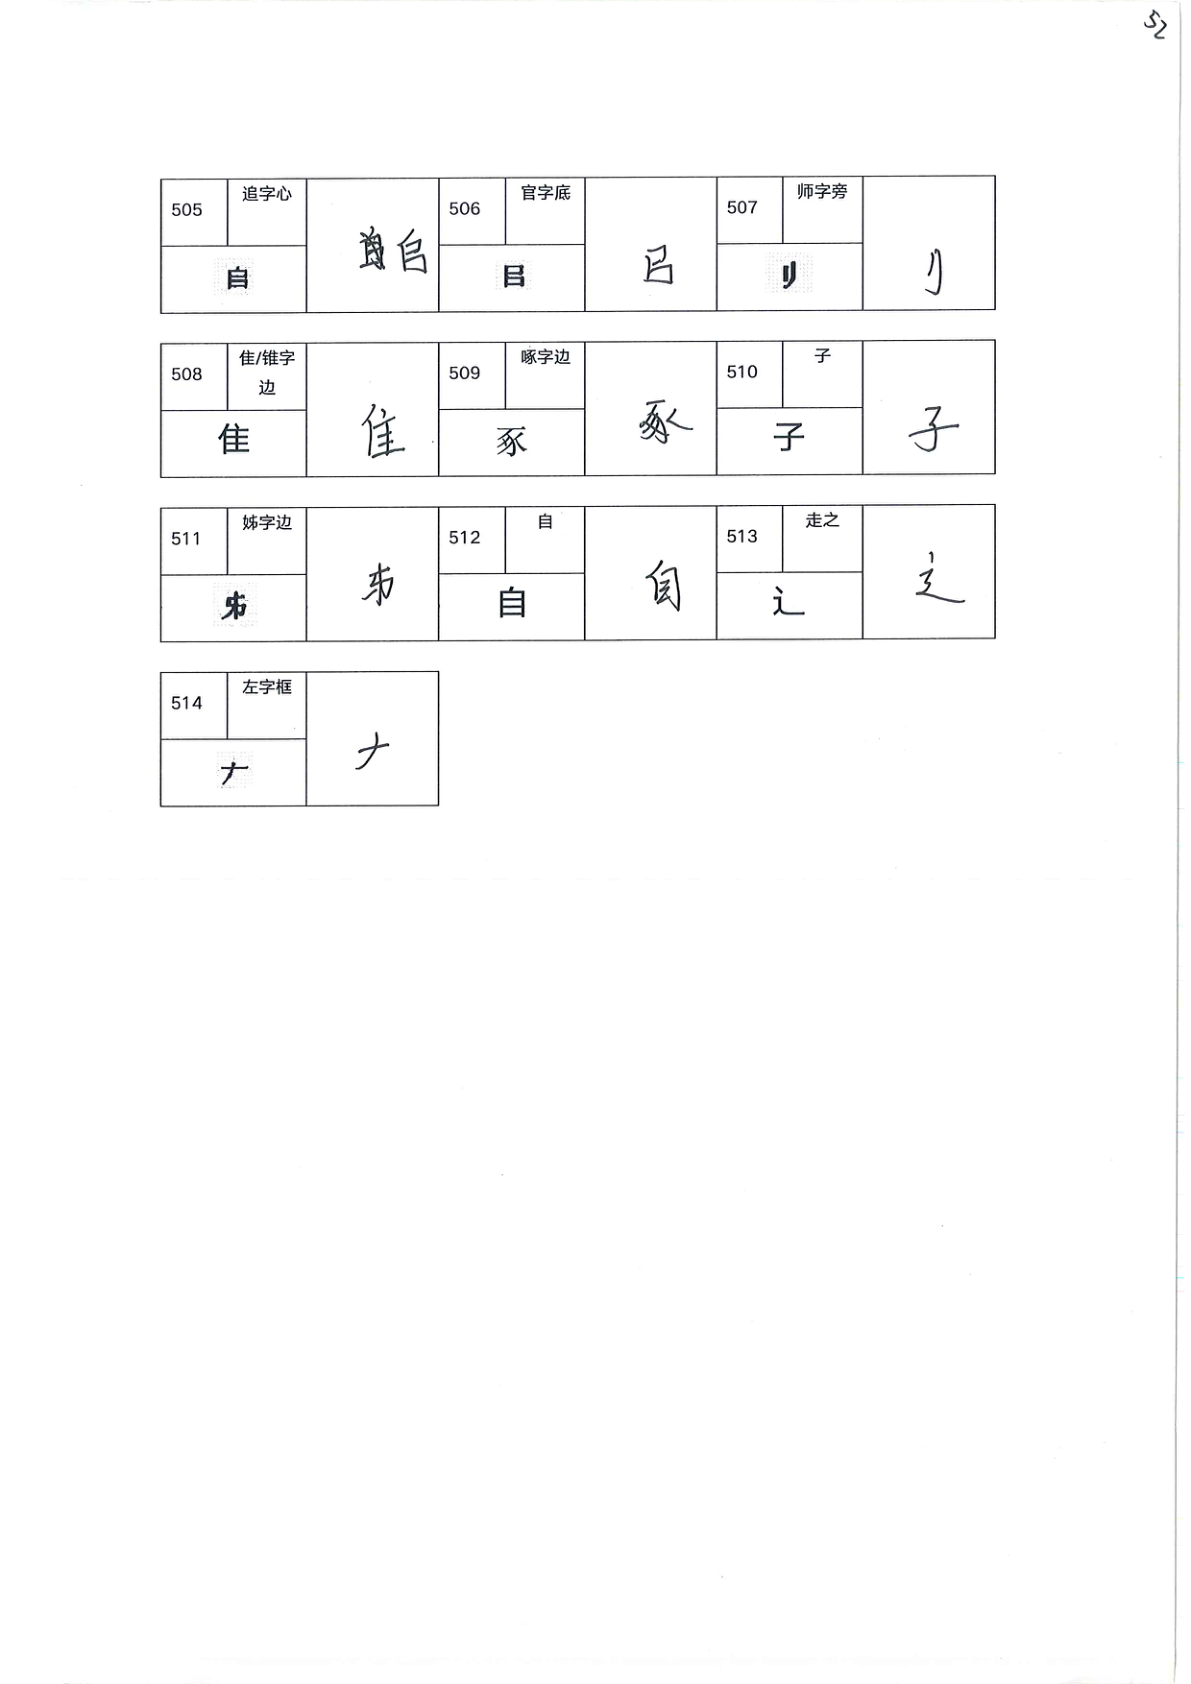 52
505 追字心 𠂤 506 官字底 㠯 㠯 507 师字旁 刂 刂
508 隹/锥字边 隹 隹 509 啄字边 豖 豖 510 子 子 子
511 姊字边 𠂔 𠂔 512 自 自 自 513 走之 辶 辶
514 左字框 𠂇 𠂇